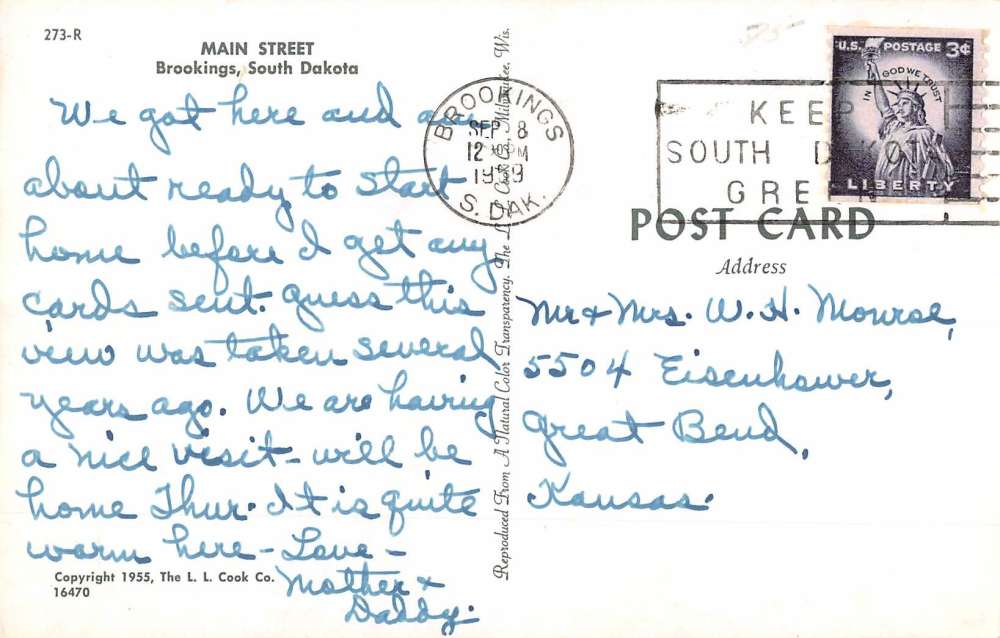 273-R
MAIN STREET
Brookings, South Dakota
We got here and are
about ready to start
home before I get any
cards sent. Guess this
view was taken several
years ago. We are having
a nice visit - will be
home Thur. It is quite
warm here - Love -
Mother &
Daddy.
Copyright 1955, The L. L. Cook Co.
16470
Reproduced From A Natural Color Transparency. The L. L. Cook Co., Milwaukee, Wis.
BROOKINGS
SEP 8
12 M
1959
S. DAK.
KEEP
SOUTH DAKOTA
GREEN
U.S. POSTAGE 3¢
IN GOD WE TRUST
LIBERTY
POST CARD
Address
Mr & Mrs. W. H. Monroe,
5504 Eisenhower,
Great Bend,
Kansas.